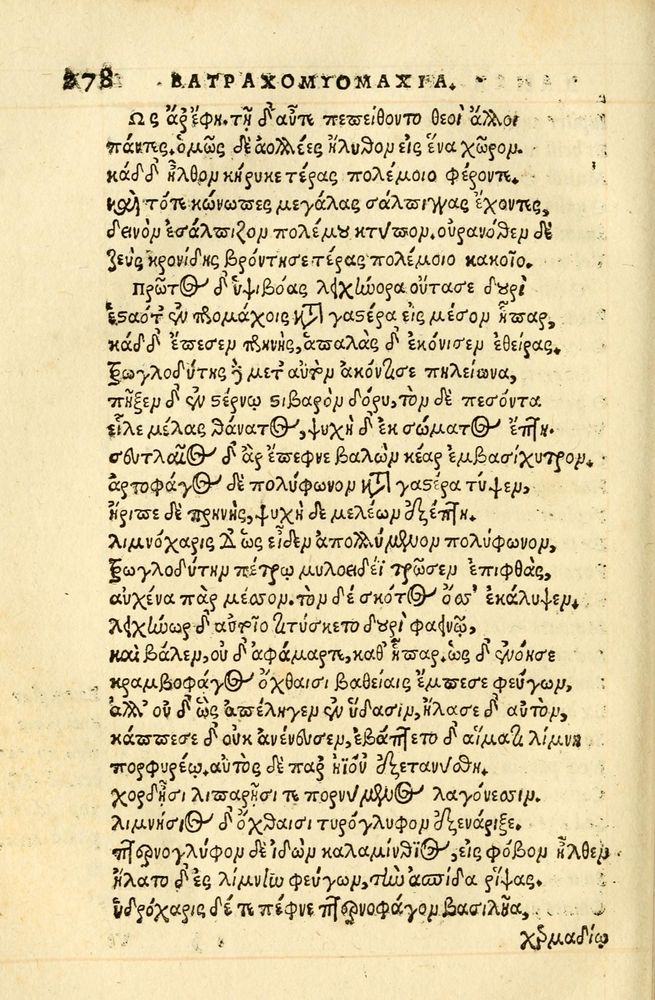 278 ΒΑΤΡΑΧΟΜΥΟΜΑΧΙΑ.
Ως ἄρ ἔφη. τῇ δ' αὖτε πεπείθοντο θεοὶ ἄλλοι
πάντες. ὁμῶς δὲ ἀολλέες ἤλυθον εἰς ἕνα χῶρον.
κάδ δ' ἦλθον κήρυκε τέρας πολέμοιο φέροντε.
καὶ τότε κώνωπες μεγάλας σάλπιγγας ἔχοντες,
δεινὸν ἐσάλπιζον πολέμου κτύπον. οὐρανόθεν δὲ
ζεὺς κρονίδης βρόντησε τέρας πολέμοιο κακοῖο.
Πρῶτος δ' ὑψιβόας λιχήνορα οὔτασε δουρὶ
ἑσαότ' ἐν προμάχοις κατὰ γαστέρα εἰς μέσον ἧπαρ,
κάδ δ' ἔπεσεν πρηνὴς, ἁπαλὰς δ' ἐκόνισεν ἐθείρας.
τρωγλοδύτης δὲ μετ' αὐτὸν ἀκόντισε πηλείωνα,
πῆξεν δ' ἐν στέρνῳ στιβαρὸν δόρυ, τὸν δὲ πεσόντα
εἷλε μέλας θάνατος, ψυχὴ δ' ἐκ σώματος ἔπτη.
σευτλαῖος δ' ἂρ ἔπεφνε βαλὼν κέαρ ἐμβασίχυτρον.
ἀρτοφάγος δὲ πολύφωνον κατὰ γαστέρα τύψεν,
ἤριπε δὲ πρηνὴς, ψυχὴ δὲ μελέων ἐξέπτη.
λιμνόχαρις δ' ὡς εἶδεν ἀπολλύμενον πολύφωνον,
τρωγλοδύτην πέτρῳ μυλοειδέϊ τρῶσεν ἐπιφθὰς,
αὐχένα παρ μέσον. τὸν δὲ σκότος ὄσσ' ἐκάλυψεν.
λιχήνωρ δ' αὐτοῖο τιτύσκετο δουρὶ φαεινῷ,
καὶ βάλεν, οὐ δ' ἀφάμαρτε, καθ' ἧπαρ. ὡς δ' ἐνόησε
κραμβοφάγος ὄχθαισι βαθείαις ἔμπεσε φεύγων,
ἀλλ' οὐ δ' ὣς ἀπέληγεν ἐν ὕδασιν, ἤλασε δ' αὐτὸν,
κάππεσε δ' οὐκ ἀνένευσεν, ἐβάπτετο δ' αἵματι λίμνη
πορφυρέῳ. αὐτὸς δὲ παρ' ἠϊόν' ἐξετανύσθη.
χορδῇσι λιπαρῇσί τε πορνύμενος λαγόνεσσιν.
λιμνήσιος δ' ὄχθαισι τυρόγλυφον ἐξενάριξε.
πτερνογλύφον δὲ ἰδὼν καλαμίνθιος, εἰς φόβον ἦλθεν
ἥλατο δ' ἐς λίμνην φεύγων, τὴν ἀσπίδα ῥίψας.
ὑδρόχαρις δέ τε πέφνε πτερνοφάγον βασιλῆα,
χερμαδίῳ